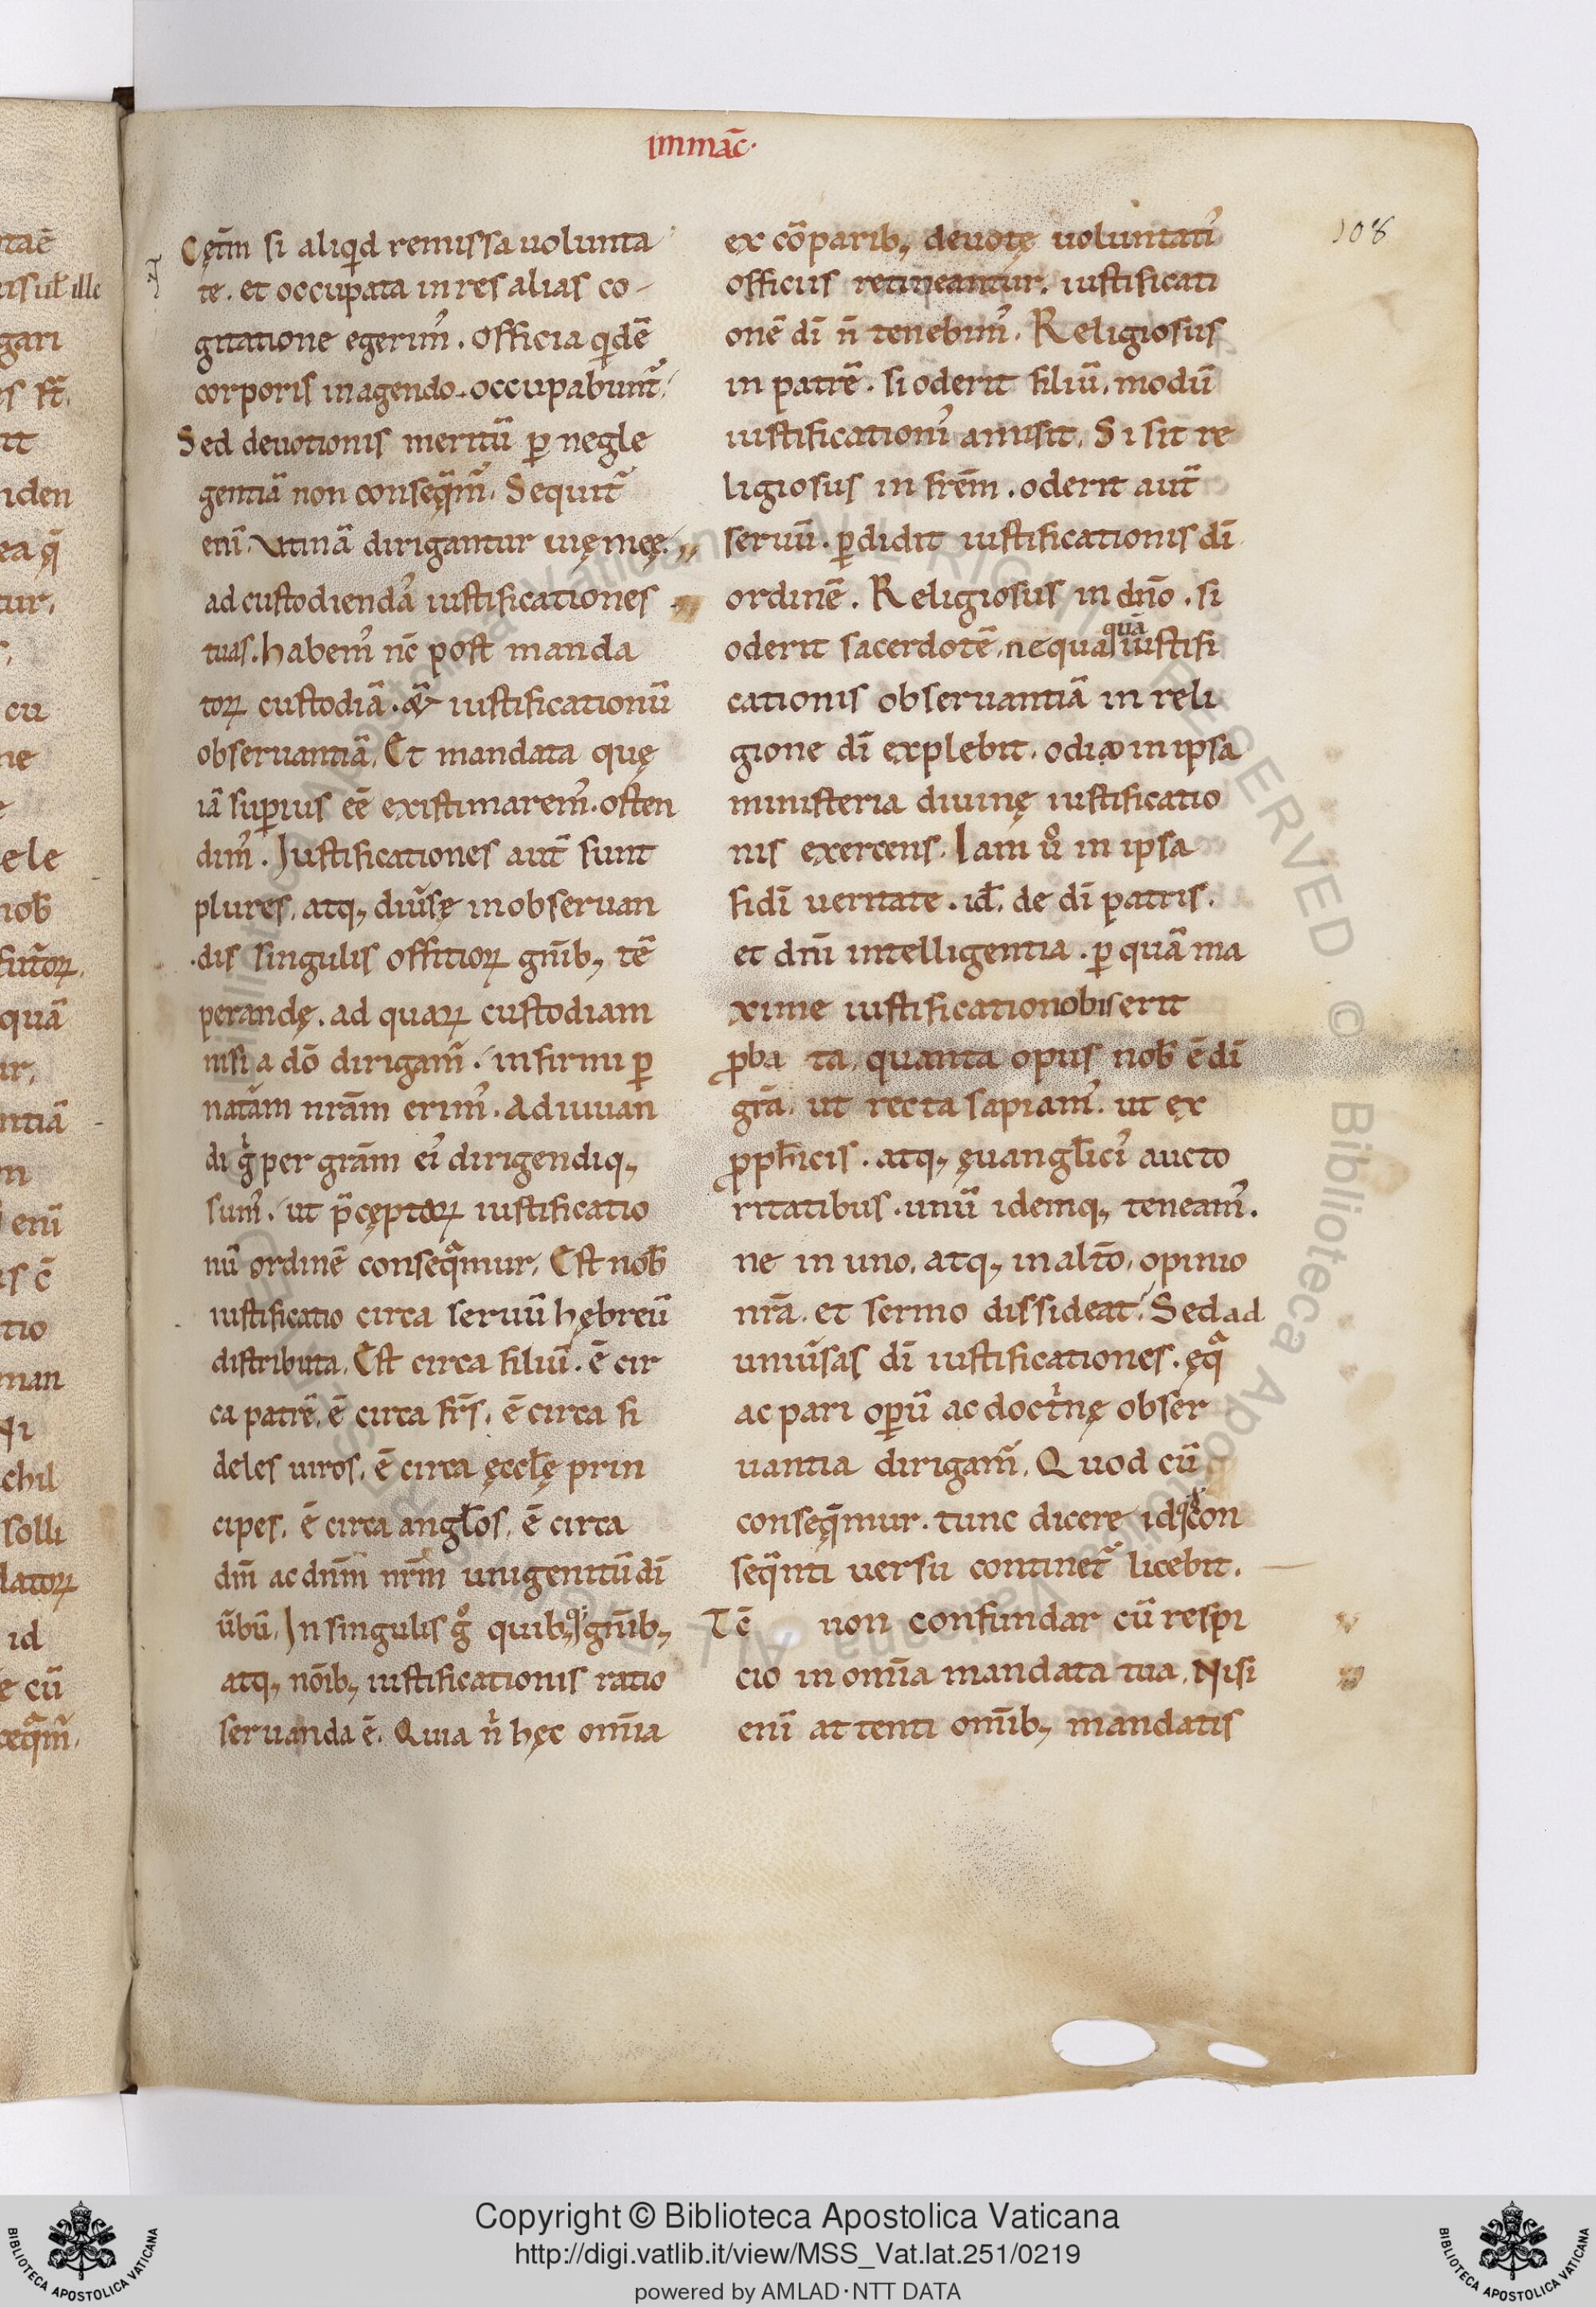 immac̄·
108
Cęt̄m si aliqd remissa uolunta
te. et occupata in res alias co-
gitatione egerim᾽. Officia qdē
corporis in agendo. occupabunt᷑.
Sed deuotionis meritū p̱ negle
gentiā non conseq̄m᷑. Sequit᷑
enī. Vtinā dirigantur uię meę.
ad custodiendā iustificationes
tuas. habem᾽ nc̄ post manda
toꝝ custodiā. & iustificationū
obseruantiā. Et mandata quę
iā supius eē existimarem᾽. osten
dim᾽. Iustificationes aut̄ sunt
plures. atq; diūsę in obseruan
dis singulis offitioꝝ gn̄ib; tē
perandę. ad quaꝝ custodiam
nisi a dō dirigam᷑. infirmi p̱
nat̄am nrām erim᾽. Adiuuan
di g̊ per grām ei᾽ dirigendiq;
sum᾽. ut p̄cęptoꝝ iustificatio
nū ordinē conseqᵃmur. Est nob̄
iustificatio circa seruū hębreū
distributa. Est circa filiū. ē cir
ca patrē. ē circa fr̄s. ē circa fi
deles uiros. ē circa ęccłę prin
cipes. ē circa angłos. ē circa
dm̄ ac dnm̄ nrm̄ unigenitū dī
ūbū. In singulis g̊ quibusq; gn̄ib;
atq; nōib; iustificationis ratio
seruanda ē. Quia nͥ hęc om̄ia
ex cōparib; deuotę uoluntati᾽
officiis retineantur. iustificati
onē dī n̄ tenebim᾽. Religiosus
in patrē. si oderit filiū. modū
iustificationi᾽ amisit. Si sit re
ligiosus in frēm. oderit aut̄
seruū. p̱didit iustificationis dī
ordinē. Religiosus in dn̄o. si
oderit sacerdotē. nequa quā iustifi
cationis obseruantiā in reli
gione dī explebit. odia in ipsa
ministeria diuinę iustificatio
nis exercens. Iam ů in ipsa
fidi ueritate. id. de dī patris.
et dn̄i intelligentia. p̱ quā ma
xime iustificatio nobis erit
ꝓba ta. quanta opus nob̄ ē dī
grā. ut recta sapiam᾽. ut ex
ꝓph̄icis. atq; ęuangłici᾽ aucto
ritatibus. unū idemq; teneam᾽.
ne in uno. atq; in altō. opinio
nrā. et sermo dissideat. Sed ad
uniūsas dī iustificationes. ęqᵃ
ac pari opū ac doctͥnę obser
uantia dirigam᷑. Quod cū
conseq̄mur. tunc dicere id qd̄ con
seq̄nti uersu continet᷑ licebit.
Tc̄ non confundar cū respi
cio in om̄ia mandata tua. Nisi
enī attenti om̄ib; mandatis
Copyright © Biblioteca Apostolica Vaticana
http://digi.vatlib.it/view/MSS_Vat.lat.251/0219
powered by AMLAD·NTT DATA